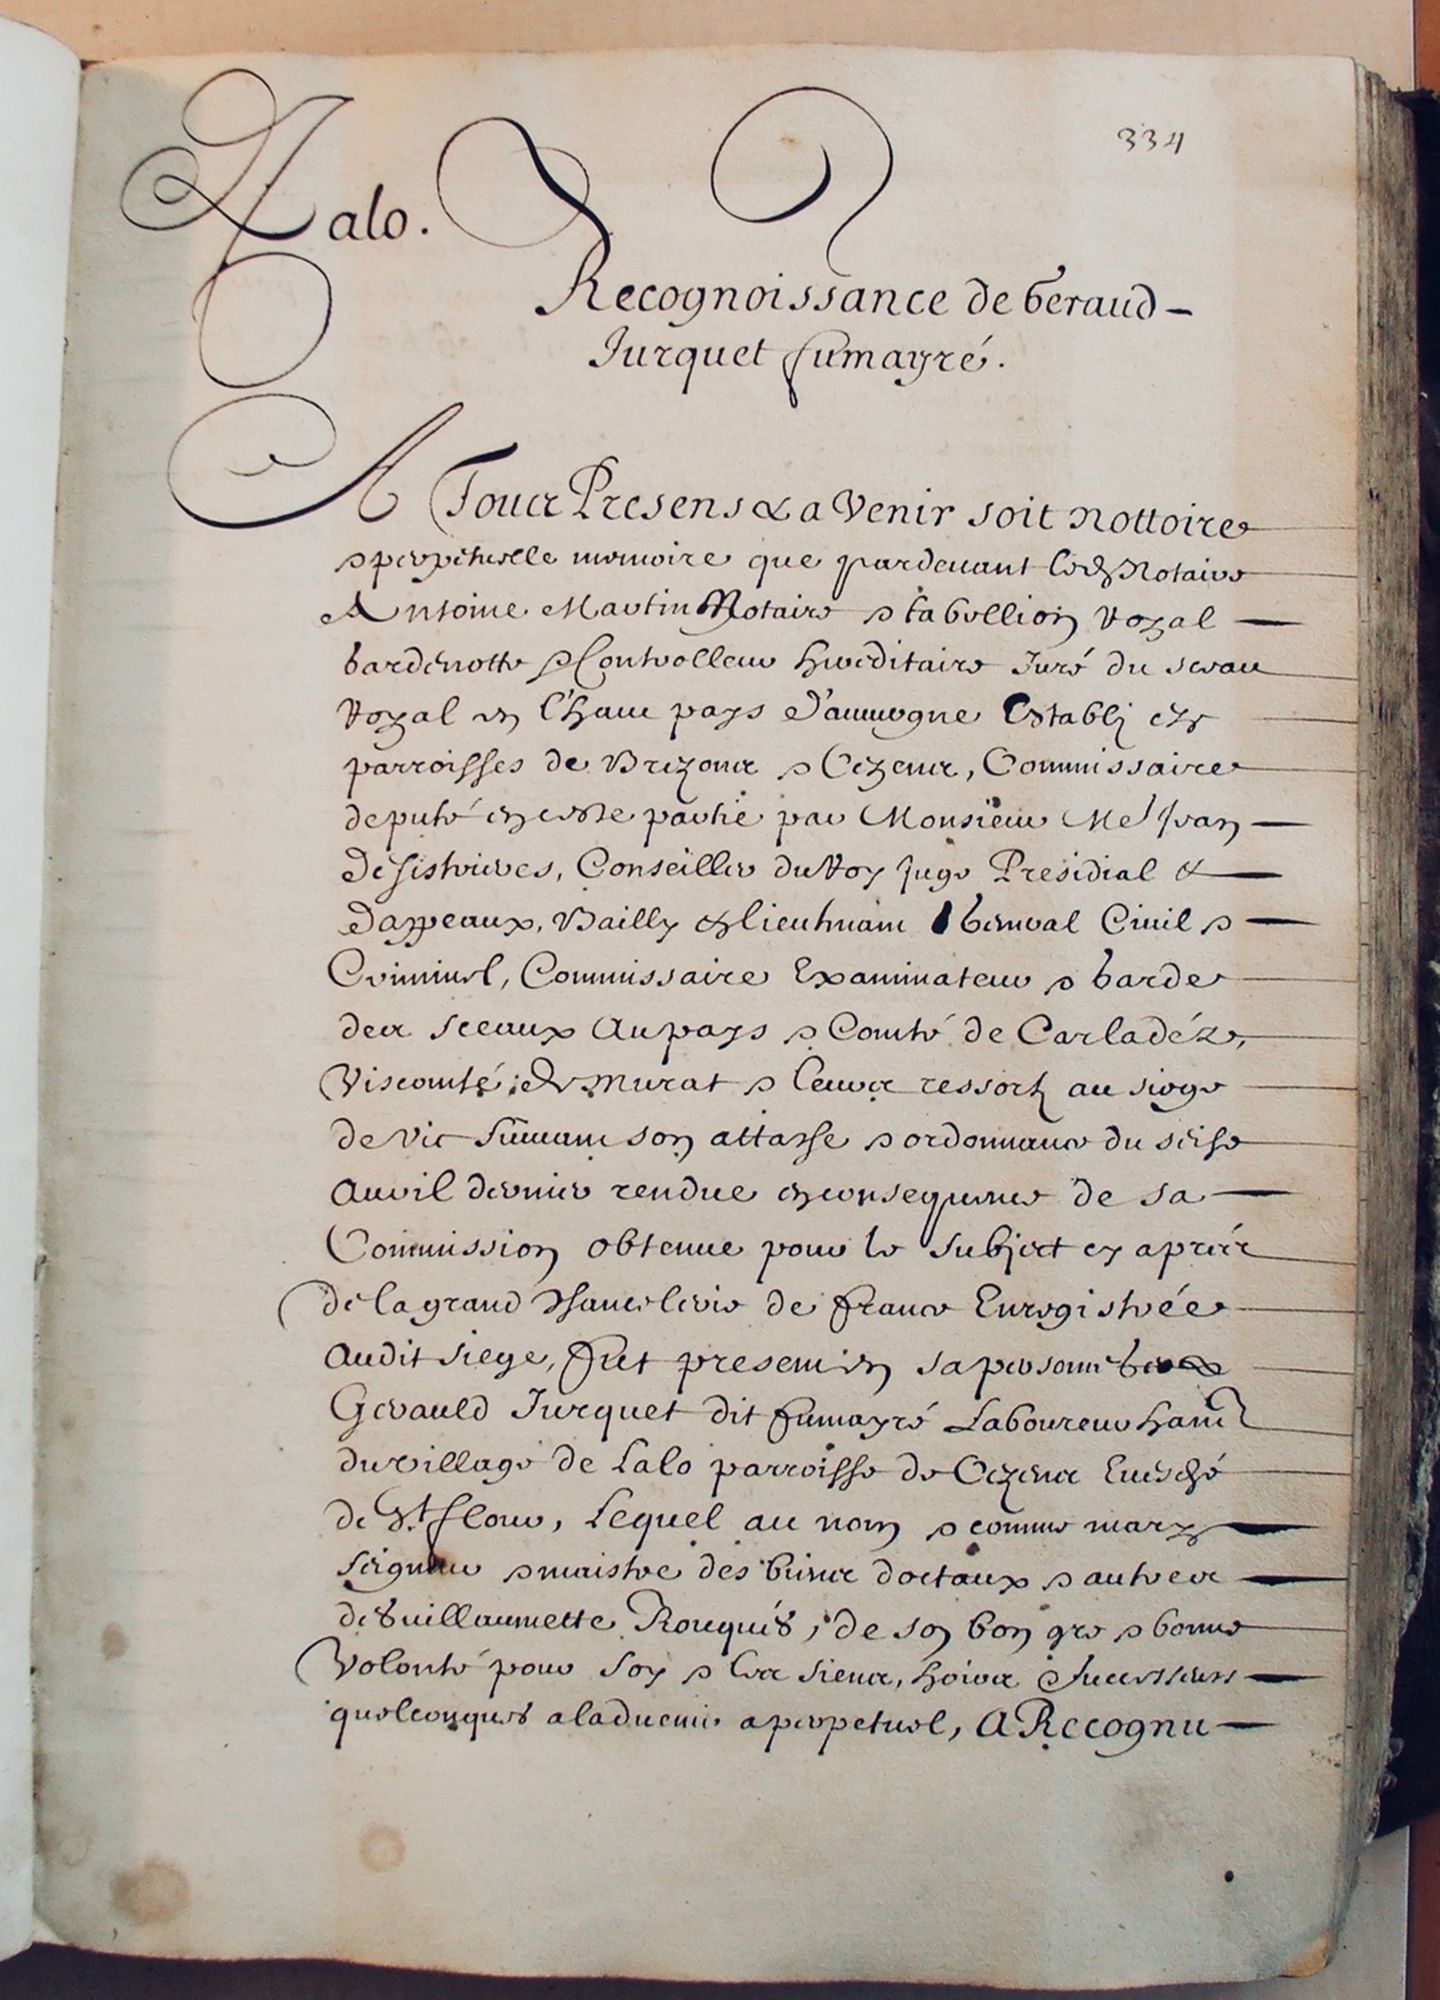 334
Lalo.
Recognoissance de Geraud
Jurquet fumayré.
A Tous Presens & a Venir soit nottoire
& perpetuelle memoire que pardevant Notaire
Antoine Martin Notaire & tabellion Royal
Gardenotte & Controlleur hereditaire Juré du seeau
Royal en l'haut pays d'auuergne Establj ez
parroisses de Brezons & Cezens, Commissaire
deputé en ceste partie par Monsieur Me Jean
de sistrieres, Conseiller du Roy Juge Presidial &
dappeaux, Bailly & lieutenant General Ciuil &
Criminel, Commissaire Examinateur & Garde
des sceaux Au pays & Comté de Carladéz,
Viscomté de Murat & leurs ressortz au siege
de Vic suiuant son attache & ordonnance du seise
Auril dernier rendue en consequence de sa
Commission obtenue pour le subject cy aprés
de la grand Chancelerie de france Enregistrée
audit siege, fut present en sa personne
Gerauld Jurquet dit fumayré Laboureur hant
du village de Lalo parroisse de Cezens Euesché
de St. flour, Lequel au nom & comme mary
seigneur & maistre des biens doctaux & autres
de Guillaumette Rouqués, de son bon gré & bonne
Volonté pour soy & les siens, hoirs & successeurs
quelconques aladuenir a perpetuel, A Recognu